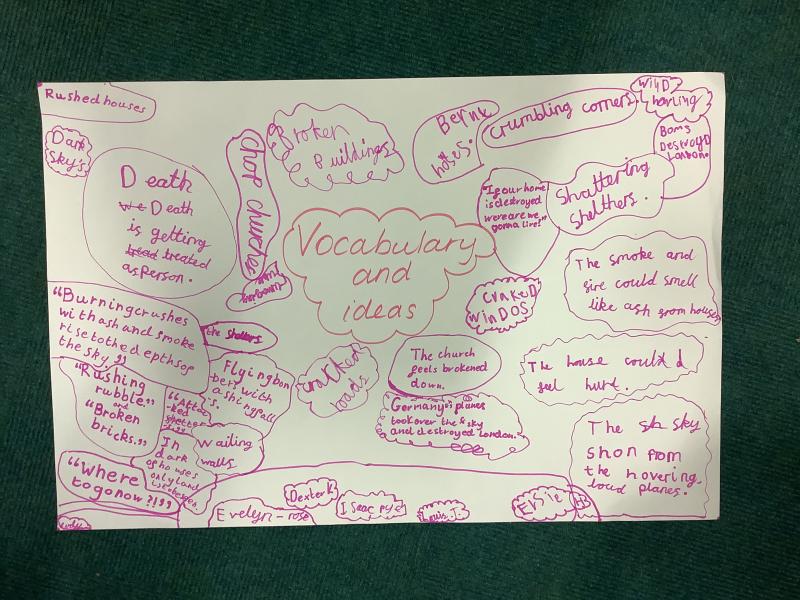 Rushed houses
Dark
Sky's
Death
we Death
is getting
treated
as person.
Chop churches
Broken
Buildings
houses.
crumbling corners.
wilD
Boms
DestroyD
London.
"If our home
is destroyed
were are we
gonna live!"
Shattering
shelthers.
Vocabulary
and
ideas
The smoke and
fire could smell
like ash from houses
craked
winDOS
"Burning crushes
with ash and smoke
rise to the depths of
the sky."
the shelters
Flying bon
bers with
ashing fall
s.
cracked
roads
The church
feels brokened
down.
The house could
feel hurt.
Germany's planes
took over the sky
and destroyed London.
"Rushing
rubble"
or
"Broken
bricks."
In
dark
of houses
only land
wailing
walls
"Where
to go now?!"
The sh sky
shon from
the hovering
loud planes.
Evelyn-rose
Dexter K
Isaac pye
Louis.J.
Elsie